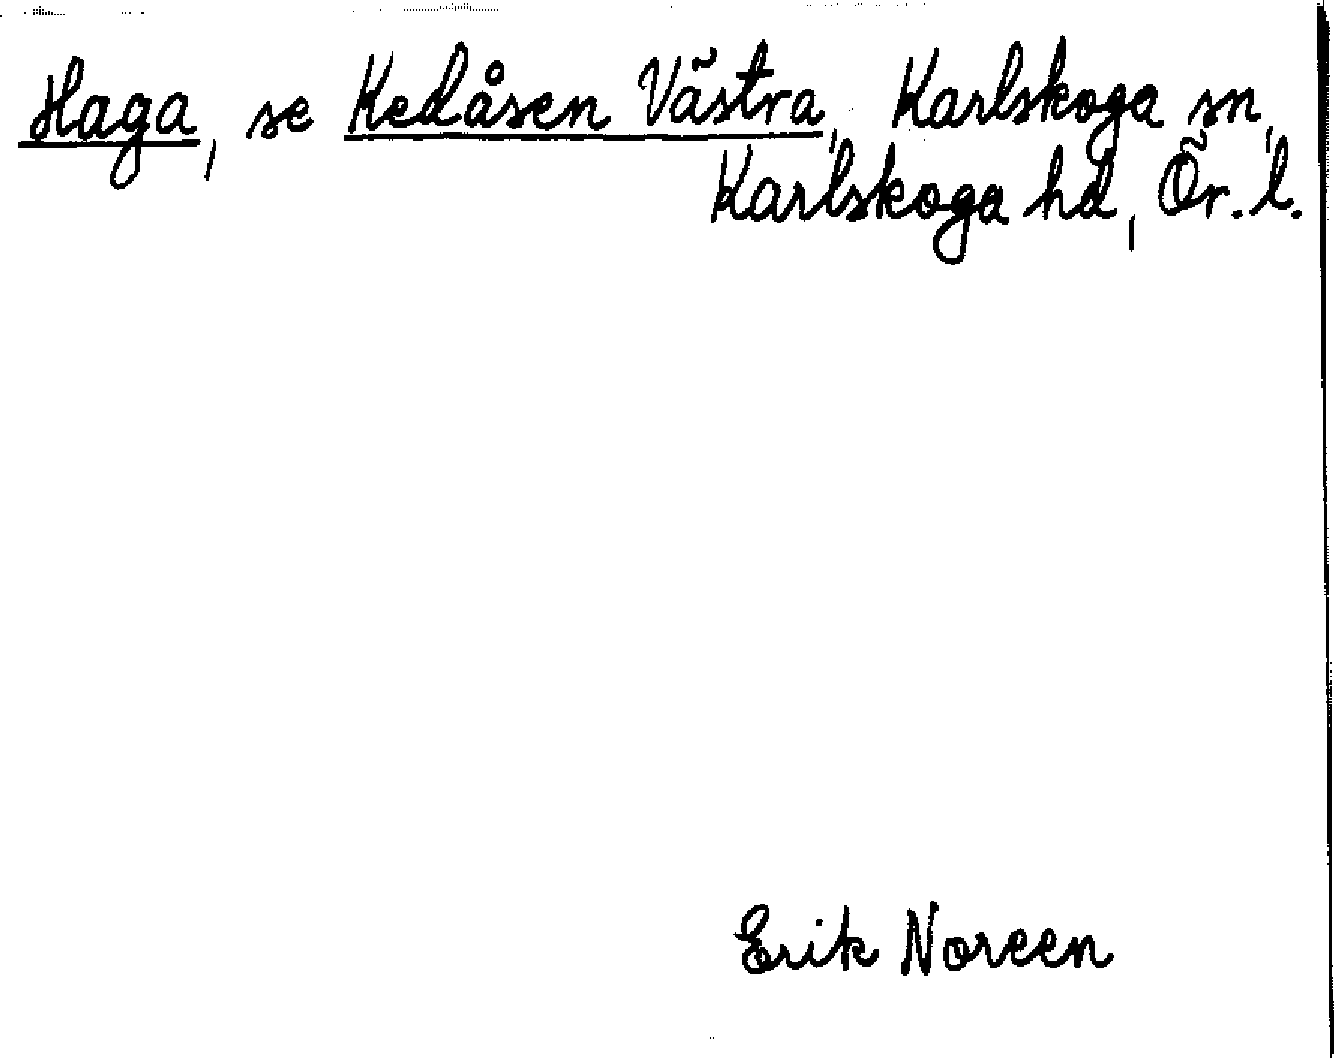 Haga, se Kedåsen Västra, Karlskoga sn,
Karlskoga hd, Ör. l.
Erik Noreen